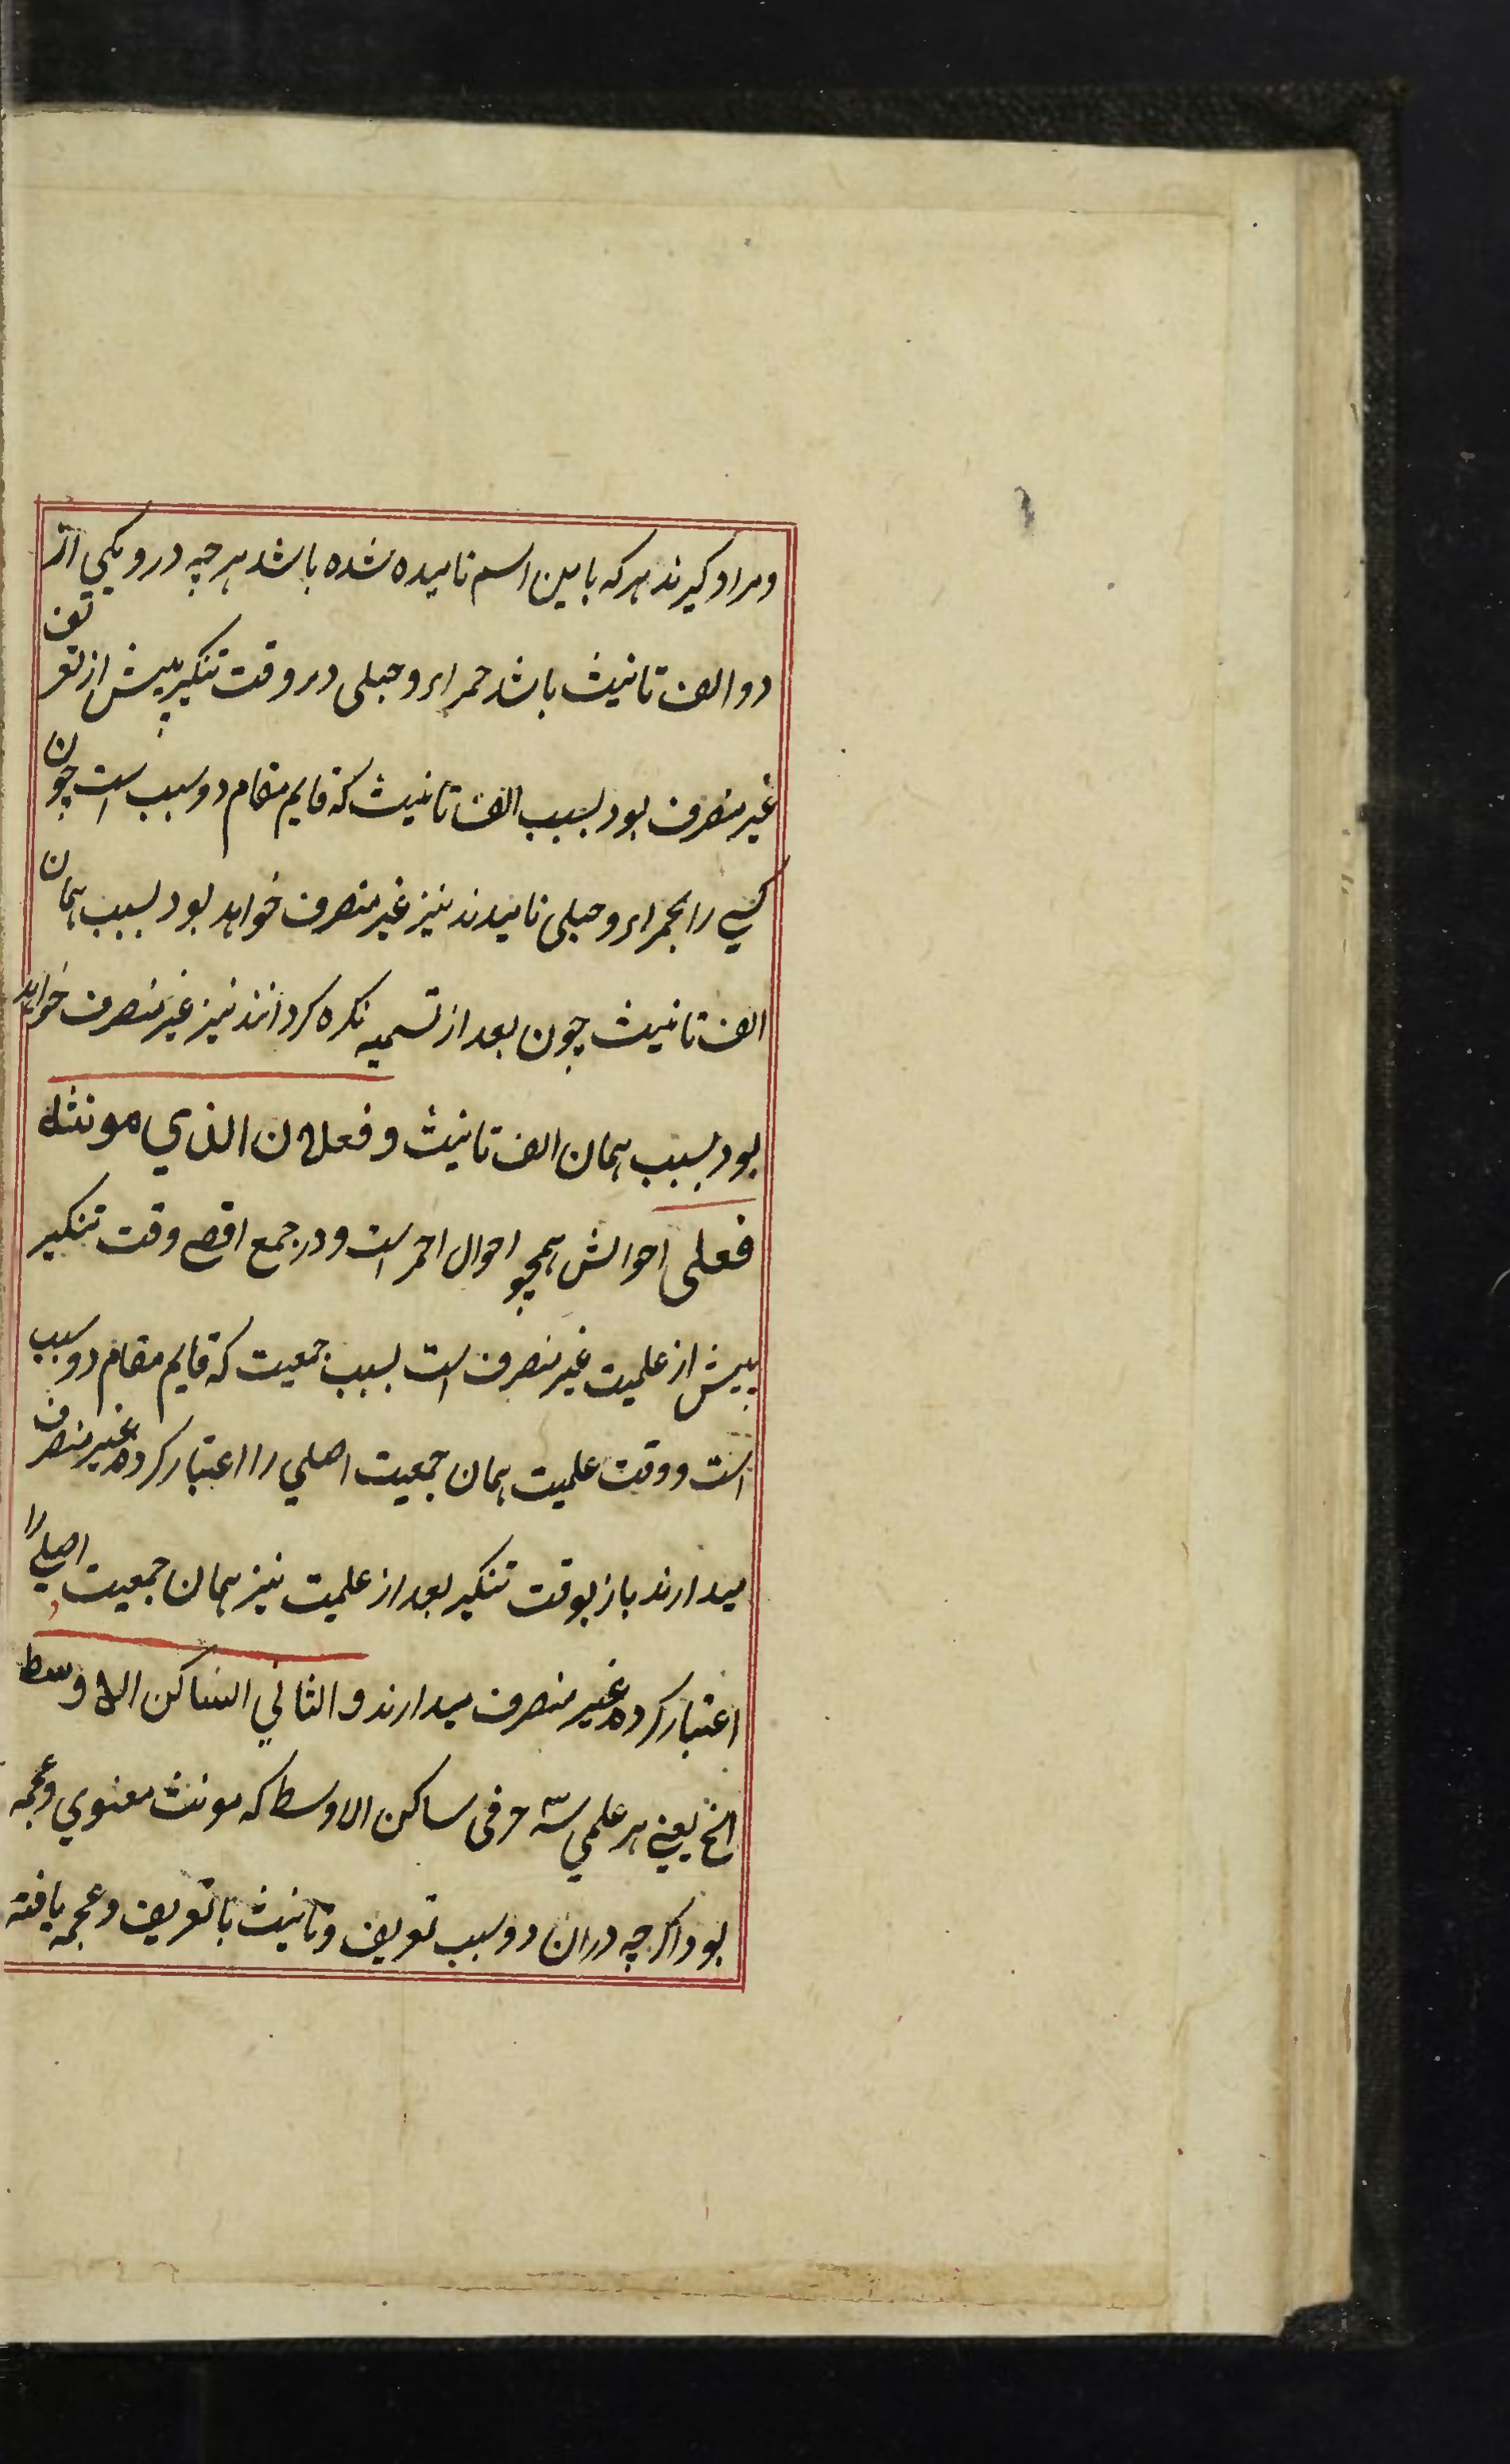 ومراد کیرند هرکه باین اسم نامیده شده باشد هرچه درو یکی از
دو الف تانیث باشد حمراء و حبلی در وقت تنکیر پیش از تعریف
غیر منصرف بود بسبب الف تانیث که قایم مقام دو سبب است چون
کسی را بحمراء و حبلی نامیدند نیز غیر منصرف خواهد بود بسبب همان
الف تانیث چون بعد از تسمیه نکره کردانند نیز غیر منصرف خواهد
بود بسبب همان الف تانیث و فعلان الذي مونثه
فعلی احوالش همچو احوال احمر است و در جمع اقصی وقت تنکیر
پیش از علمیت غیر منصرف است بسبب جمعیت که قایم مقام دو سبب
است و وقت علمیت همان جمعیت اصلي را اعتبار کرده غیر منصرف
میدارند باز بوقت تنکیر بعد از علمیت نیز همان جمعیت اصلي را
اعتبار کرده غیر منصرف میدارند و الثاني الساکن الاوسط
الخ یعنی هر علمي سه حرفی ساکن الاوسط که مونث معنوي و عجمه
بود اکرچه دران دو سبب تعریف و تانیث یا تعریف و عجمه یافته